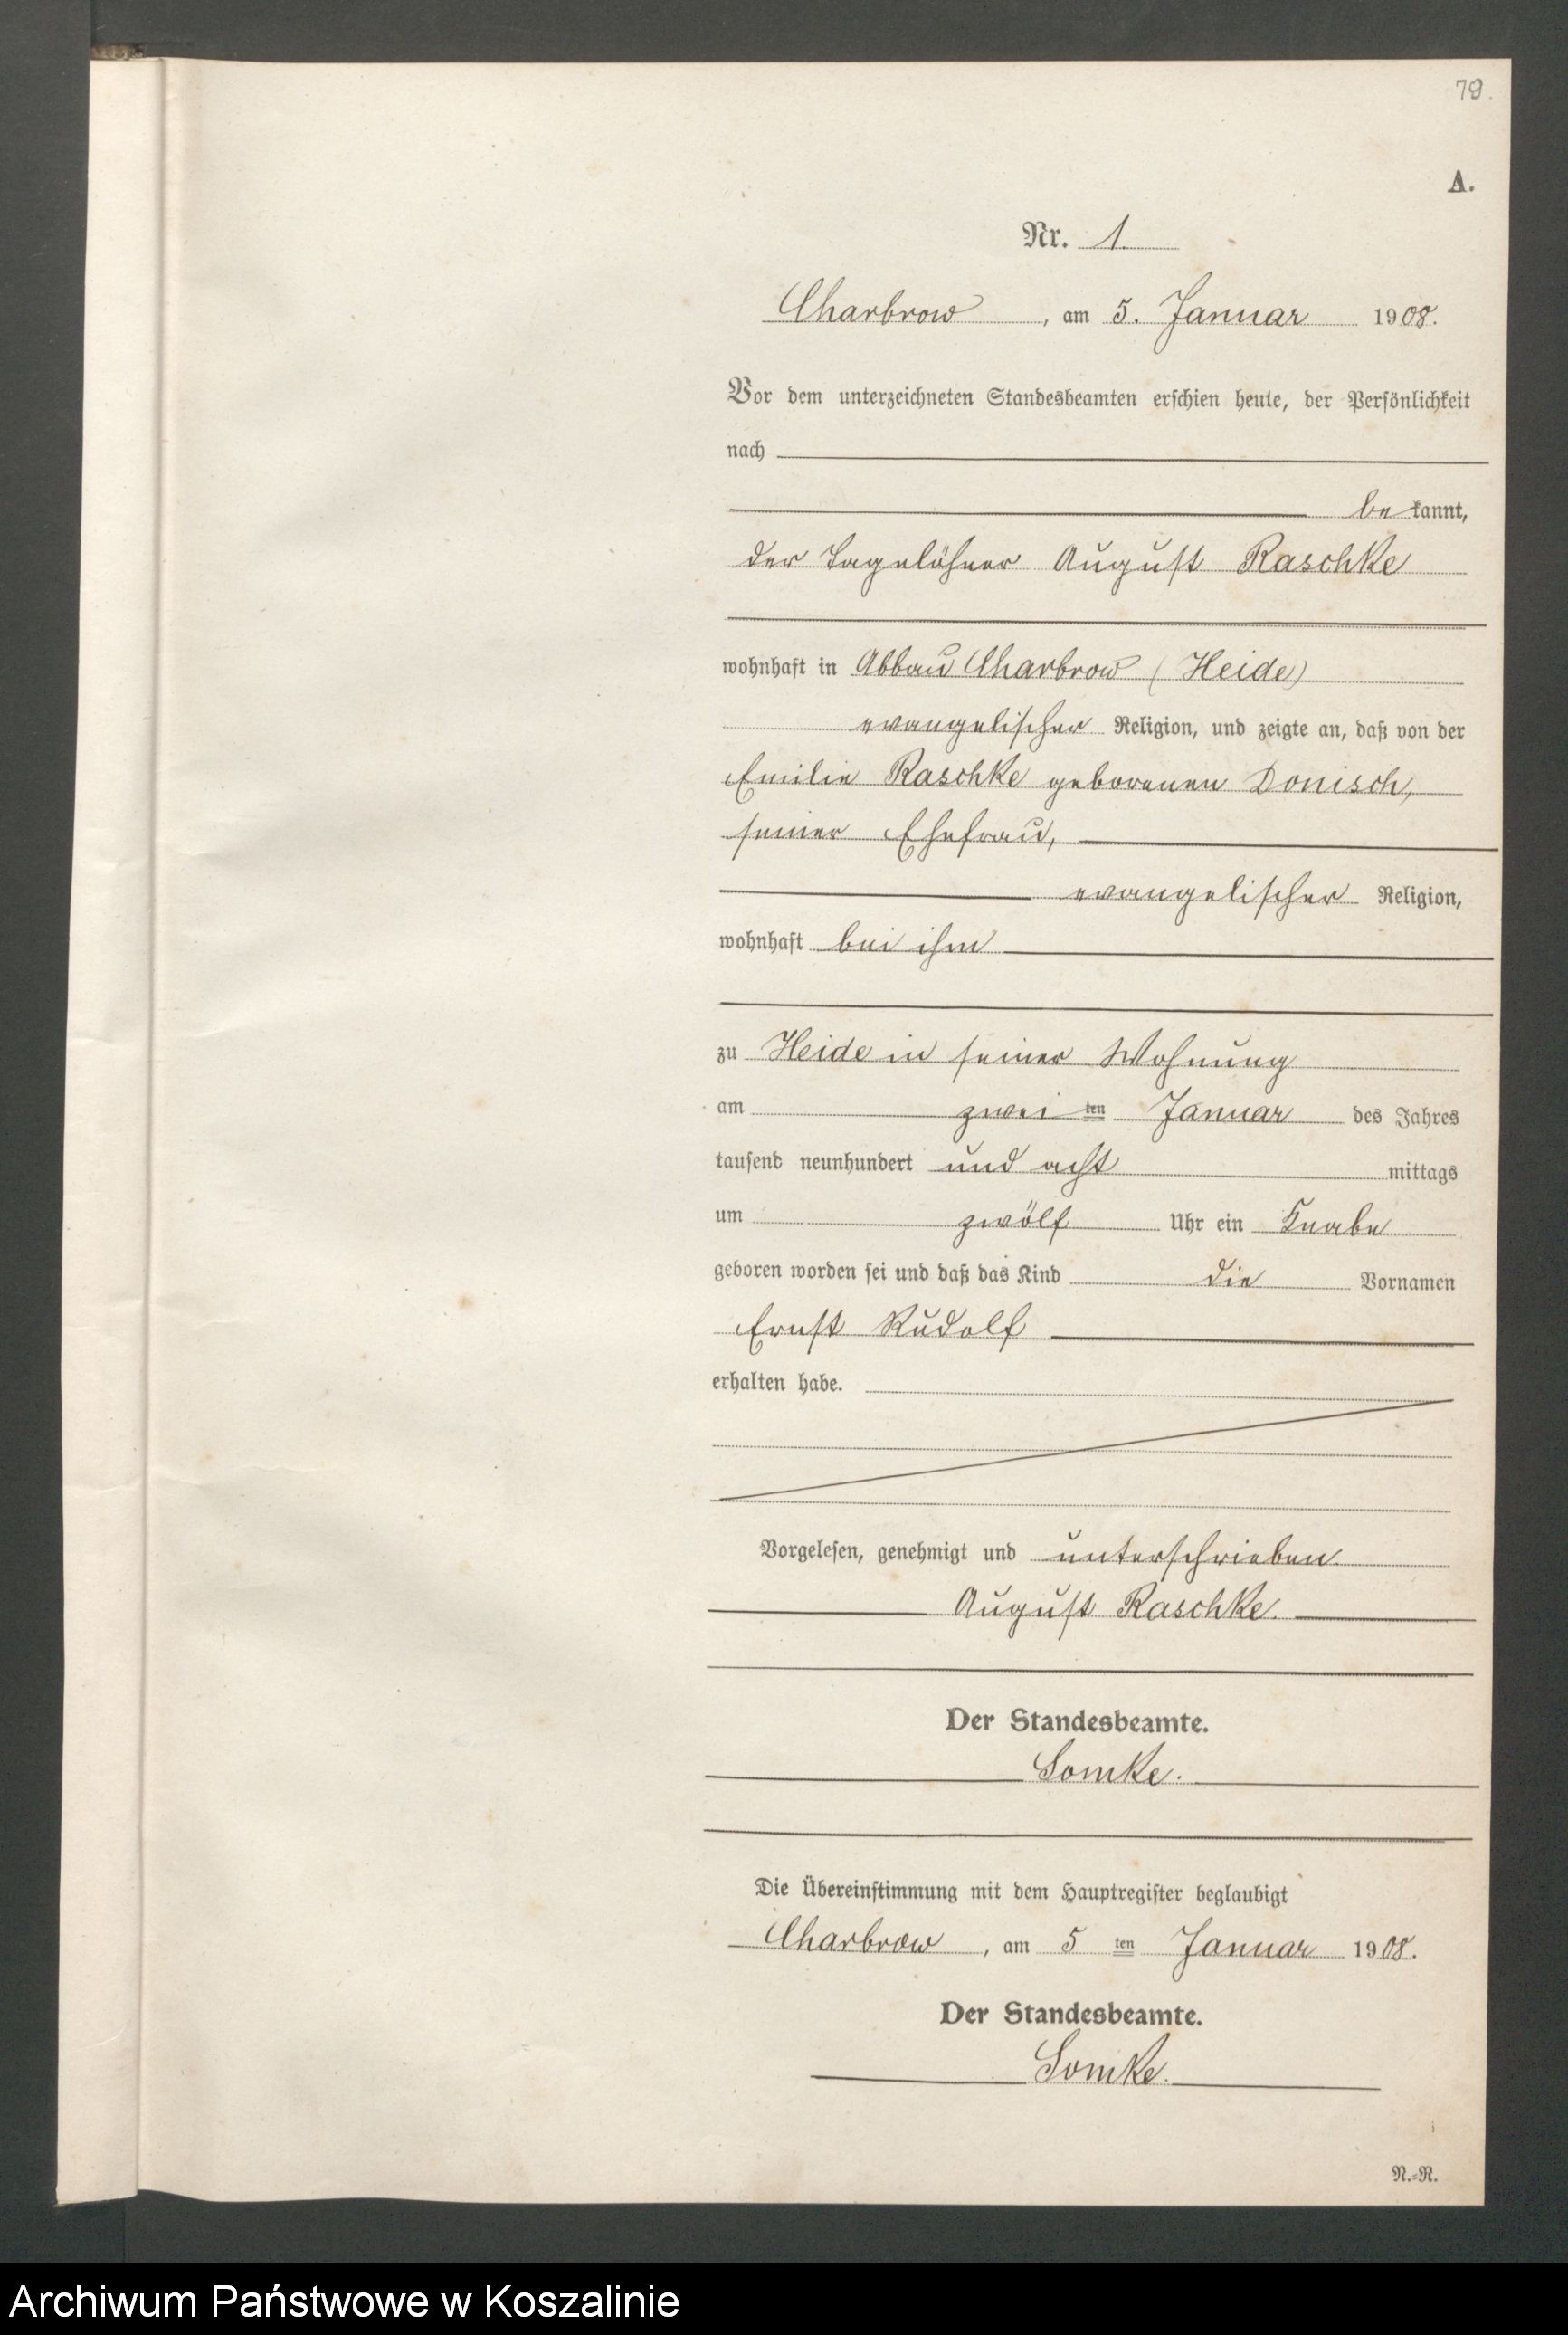 79.
A.
Nr. 1.
Charbrow, am 5. Januar 1908.
Vor dem unterzeichneten Standesbeamten erschien heute, der Persönlichkeit
nach
be kannt,
der Tagelöhner August Raschke
wohnhaft in Abbau Charbrow (Heide)
evangelischer Religion, und zeigte an, daß von der
Emilie Raschke geborenen Donisch,
seiner Ehefrau,
evangelischer Religion,
wohnhaft bei ihm
zu Heide in seiner Wohnung
am zwei ten Januar des Jahres
tausend neunhundert und acht mittags
um zwölf Uhr ein Knabe
geboren worden sei und daß das Kind die Vornamen
Ernst Rudolf
erhalten habe.
Vorgelesen, genehmigt und unterschrieben.
August Raschke.
Der Standesbeamte.
Somke.
Die Übereinstimmung mit dem Hauptregister beglaubigt
Charbrow, am 5 ten Januar 1908.
Der Standesbeamte.
Somke.
N.=R.
Archiwum Państwowe w Koszalinie